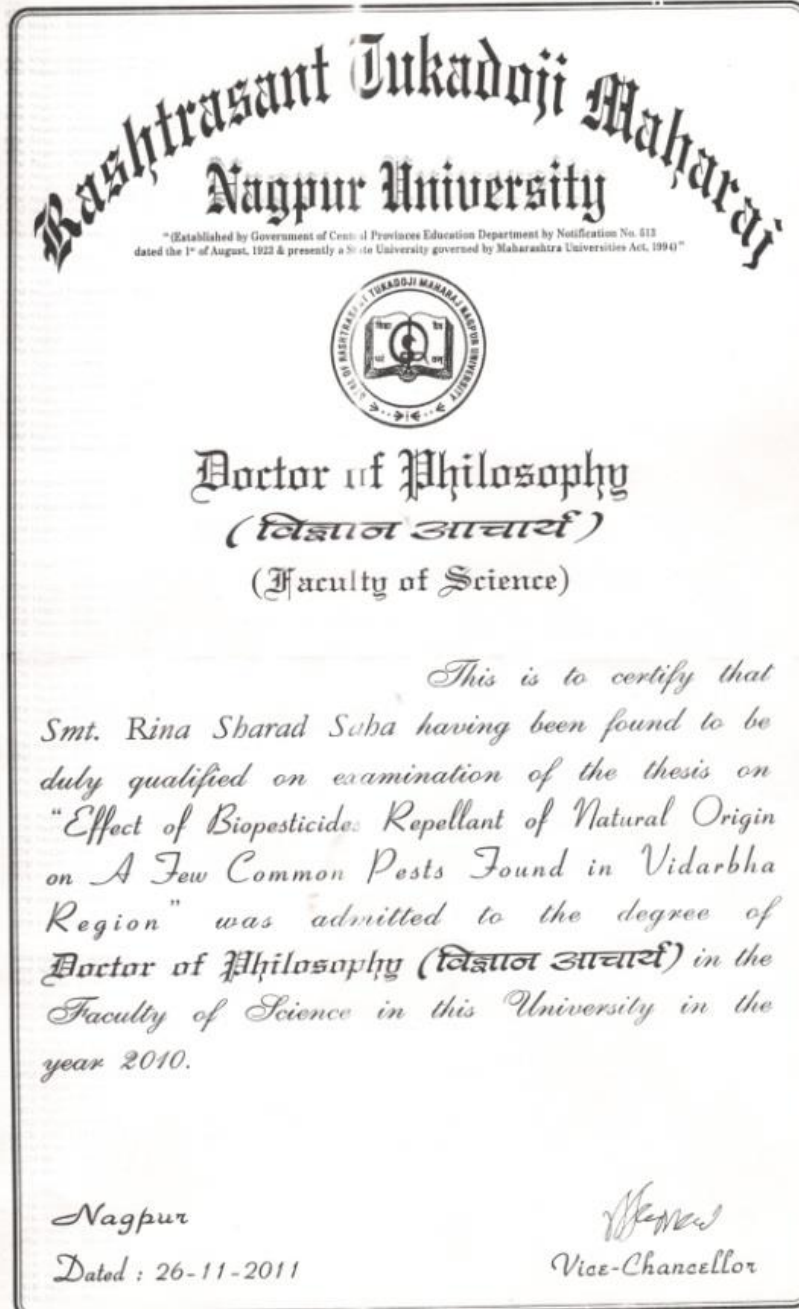 Rashtrasant Tukadoji Maharaj
Nagpur University
"(Established by Government of Central Provinces Education Department by Notification No. 513
dated the 1st of August, 1923 & presently a State University governed by Maharashtra Universities Act, 1994)"
SEAL OF RASHTRASANT TUKADOJI MAHARAJ NAGPUR UNIVERSITY
Doctor of Philosophy
(विज्ञान आचार्य)
(Faculty of Science)
This is to certify that
Smt. Rina Sharad Saha having been found to be
duly qualified on examination of the thesis on
"Effect of Biopesticides Repellant of Natural Origin
on A Few Common Pests Found in Vidarbha
Region" was admitted to the degree of
Doctor of Philosophy (विज्ञान आचार्य) in the
Faculty of Science in this University in the
year 2010.
Nagpur
Dated : 26-11-2011
Vice-Chancellor